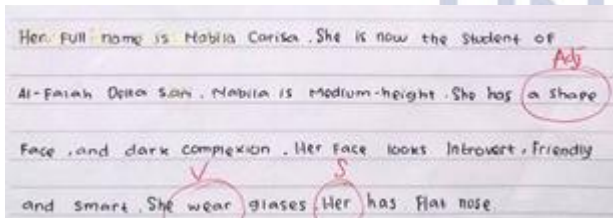 Her Full name is Nabila Carisa . She is now the Student of
Adj
Al-Falah Delta Sari . Nabila is Medium-height . She has a shape
Face , and dark complexion . Her Face looks Introvert , Friendly
V S
and smart . She wear glases . Her has Flat nose